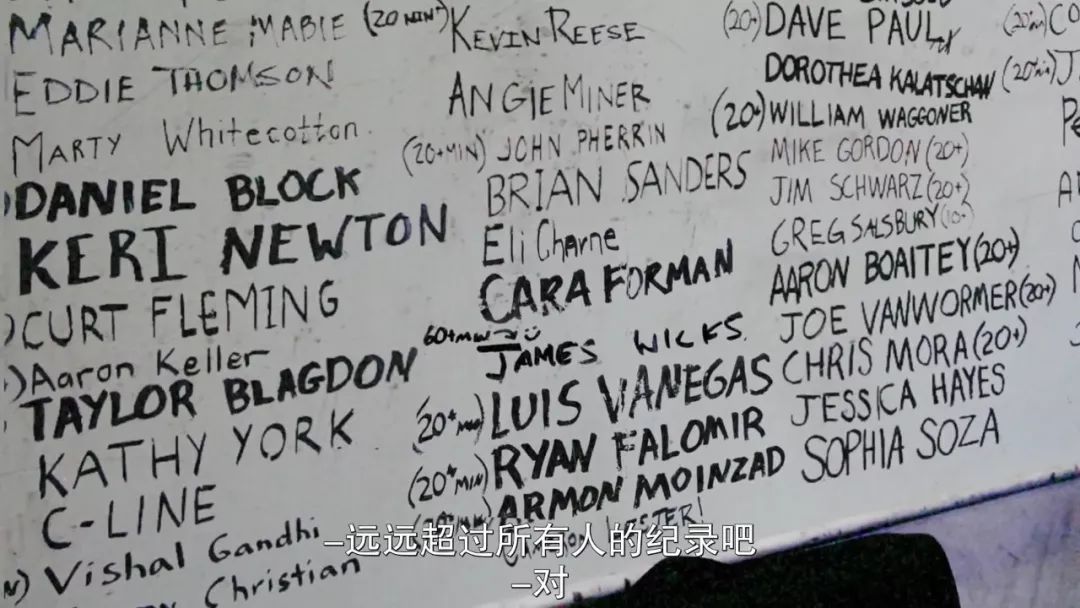 MARIANNE MABIE (20 MIN+)
EDDIE THOMSON
MARTY Whitecotton
DANIEL BLOCK
KERI NEWTON
CURT FLEMING
Aaron Keller
TAYLOR BLAGDON
KATHY YORK
C-LINE
Vishal Gandhi
Christian
KEVIN REESE
ANGIE MINER
(20+MIN) JOHN PHERRIN
BRIAN SANDERS
Eli Charne
CARA FORMAN
60+MIN
JAMES WICKS
(20+ MIN) LUIS VANEGAS
(20+ MIN) RYAN FALOMIR
ARMON MOINZAD
(20+) DAVE PAUL
DOROTHEA KALATSCHAN
(20+) WILLIAM WAGGONER
MIKE GORDON (20+)
JIM SCHWARZ (20+)
GREG SALSBURY
AARON BOAITEY (20+)
JOE VANWORMER (20+)
CHRIS MORA (20+)
JESSICA HAYES
SOPHIA SOZA
(20+ MIN)
–远远超过所有人的纪录吧
–对